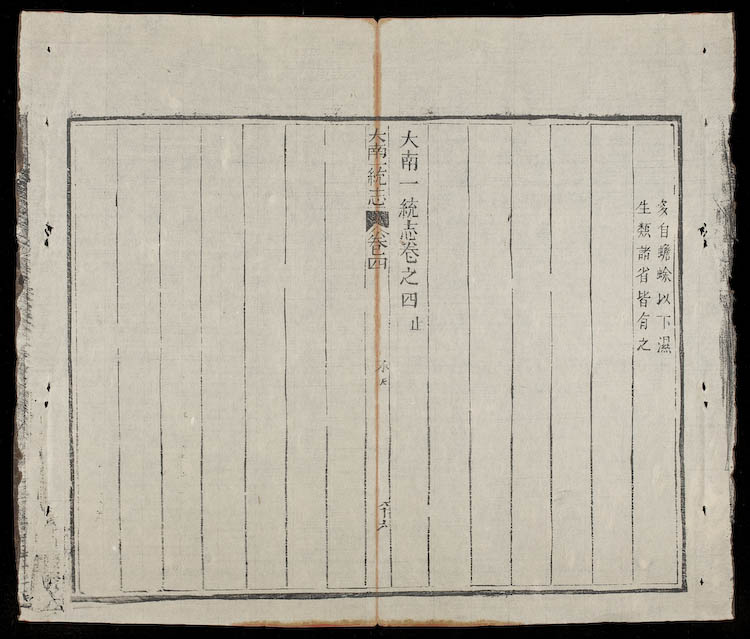 多自蟾蜍以下濕
生類諸省皆有之
大南一統志卷之四 止
大南一統志 卷四